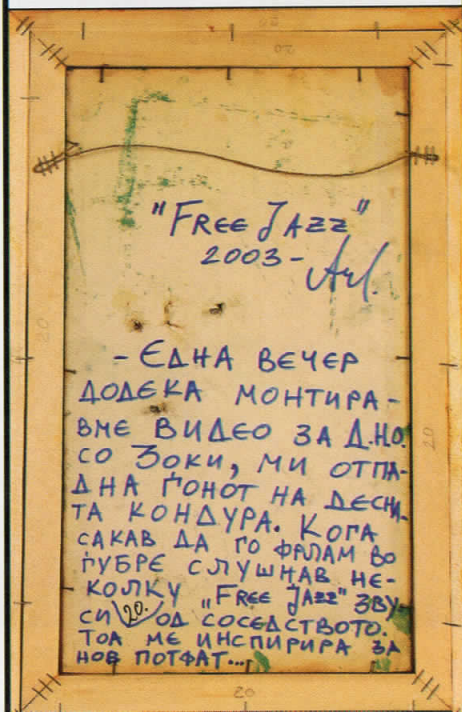 "FREE JAZZ"
2003 -
- ЕДНА ВЕЧЕР
ДОДЕКА МОНТИРА-
ВМЕ ВИДЕО ЗА Д.Н.О.
СО ЗОКИ, МИ ОТПА-
ДНА ЃОНОТ НА ДЕСНА-
ТА КОНДУРА. КОГА
САКАВ ДА ГО ФРЛАМ ВО
ЃУБРЕ СЛУШНАВ НЕ-
КОЛКУ „FREE JAZZ" ЗВУ-
СИ ОД СОСЕДСТВОТО.
20.
ТОА МЕ ИНСПИРИРА ЗА
НОВ ПОТФАТ...
20
20
20
20